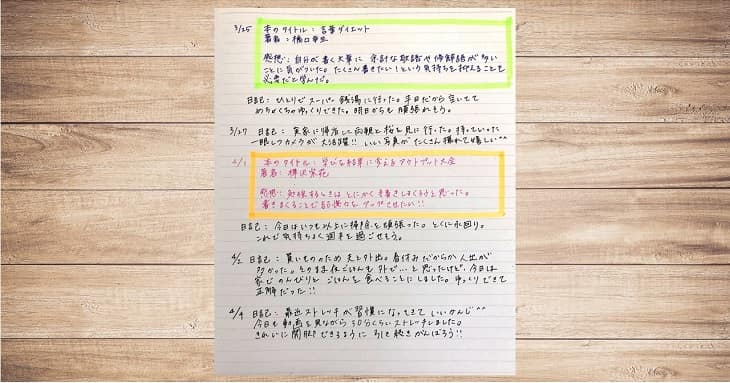 3/25 本のタイトル：言葉ダイエット
著者：橋口幸生
感想：自分が書く文章に 余計な敬語や修飾語が多い
ことに気がついた。たくさん書きたい！という気持ちを抑えることも
必要だと学んだ。
日記：ひとりでスーパー銭湯に行った。平日だから空いてて
めちゃくちゃゆっくりできた。明日からも頑張れそう。
3/27 日記：実家に帰省して両親と桜を見に行った。持っていった
一眼レフカメラが大活躍!! いい写真がたくさん撮れて嬉しい^^
4/1 本のタイトル：学びを結果に変えるアウトプット大全
著者：樺沢紫苑
感想：勉強するときはとにかく手書きしまくろうと思った。
書きまくることで記憶力をアップさせたい!!
日記：今日はいつも以上に掃除を頑張った。とくに水回り。
これで気持ちよく週末を過ごせそう。
4/2 日記：買いもののため夫と外出。春休みだからか人出が
多かった。そのまま夜ごはんも外で…と思ったけど、今日は
家でのんびりとごはんを食べることにしました。ゆっくりできて
正解だった!!
4/4 日記：最近ストレッチが習慣になってきていいかんじ^^
今日も動画を見ながら30分くらいストレッチしました。
きれいに開脚できるように引き続きがんばろう!!